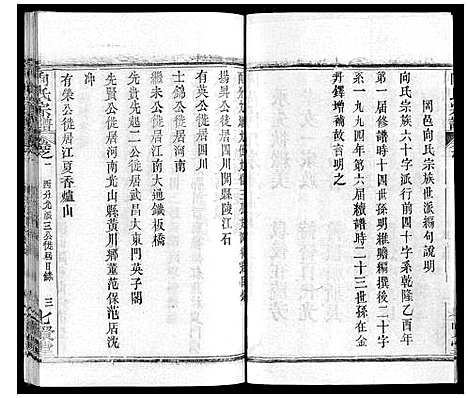 岡邑向氏宗族世派編句說明
向氏宗族六十字派行前四十字系乾隆乙酉年
第一屆修譜時十四世孫明維贍編撰後二十字
是一九九四年第六屆續譜時二十三世孫光金
丹鐸增補故言明之
揚昇公徙居四川閬縣陵江石
有英公徙居四川
士鶴公徙居河南
繼未公徙居江南大通鐵板橋
先貴先起二公徙居武昌大東門英子閣
先賢公徙居河南光山縣黃川鄉董范保范店洗
沖
有榮公徙居江夏香爐山
向氏宗譜 卷之一 西分允派三公徙居目錄 三